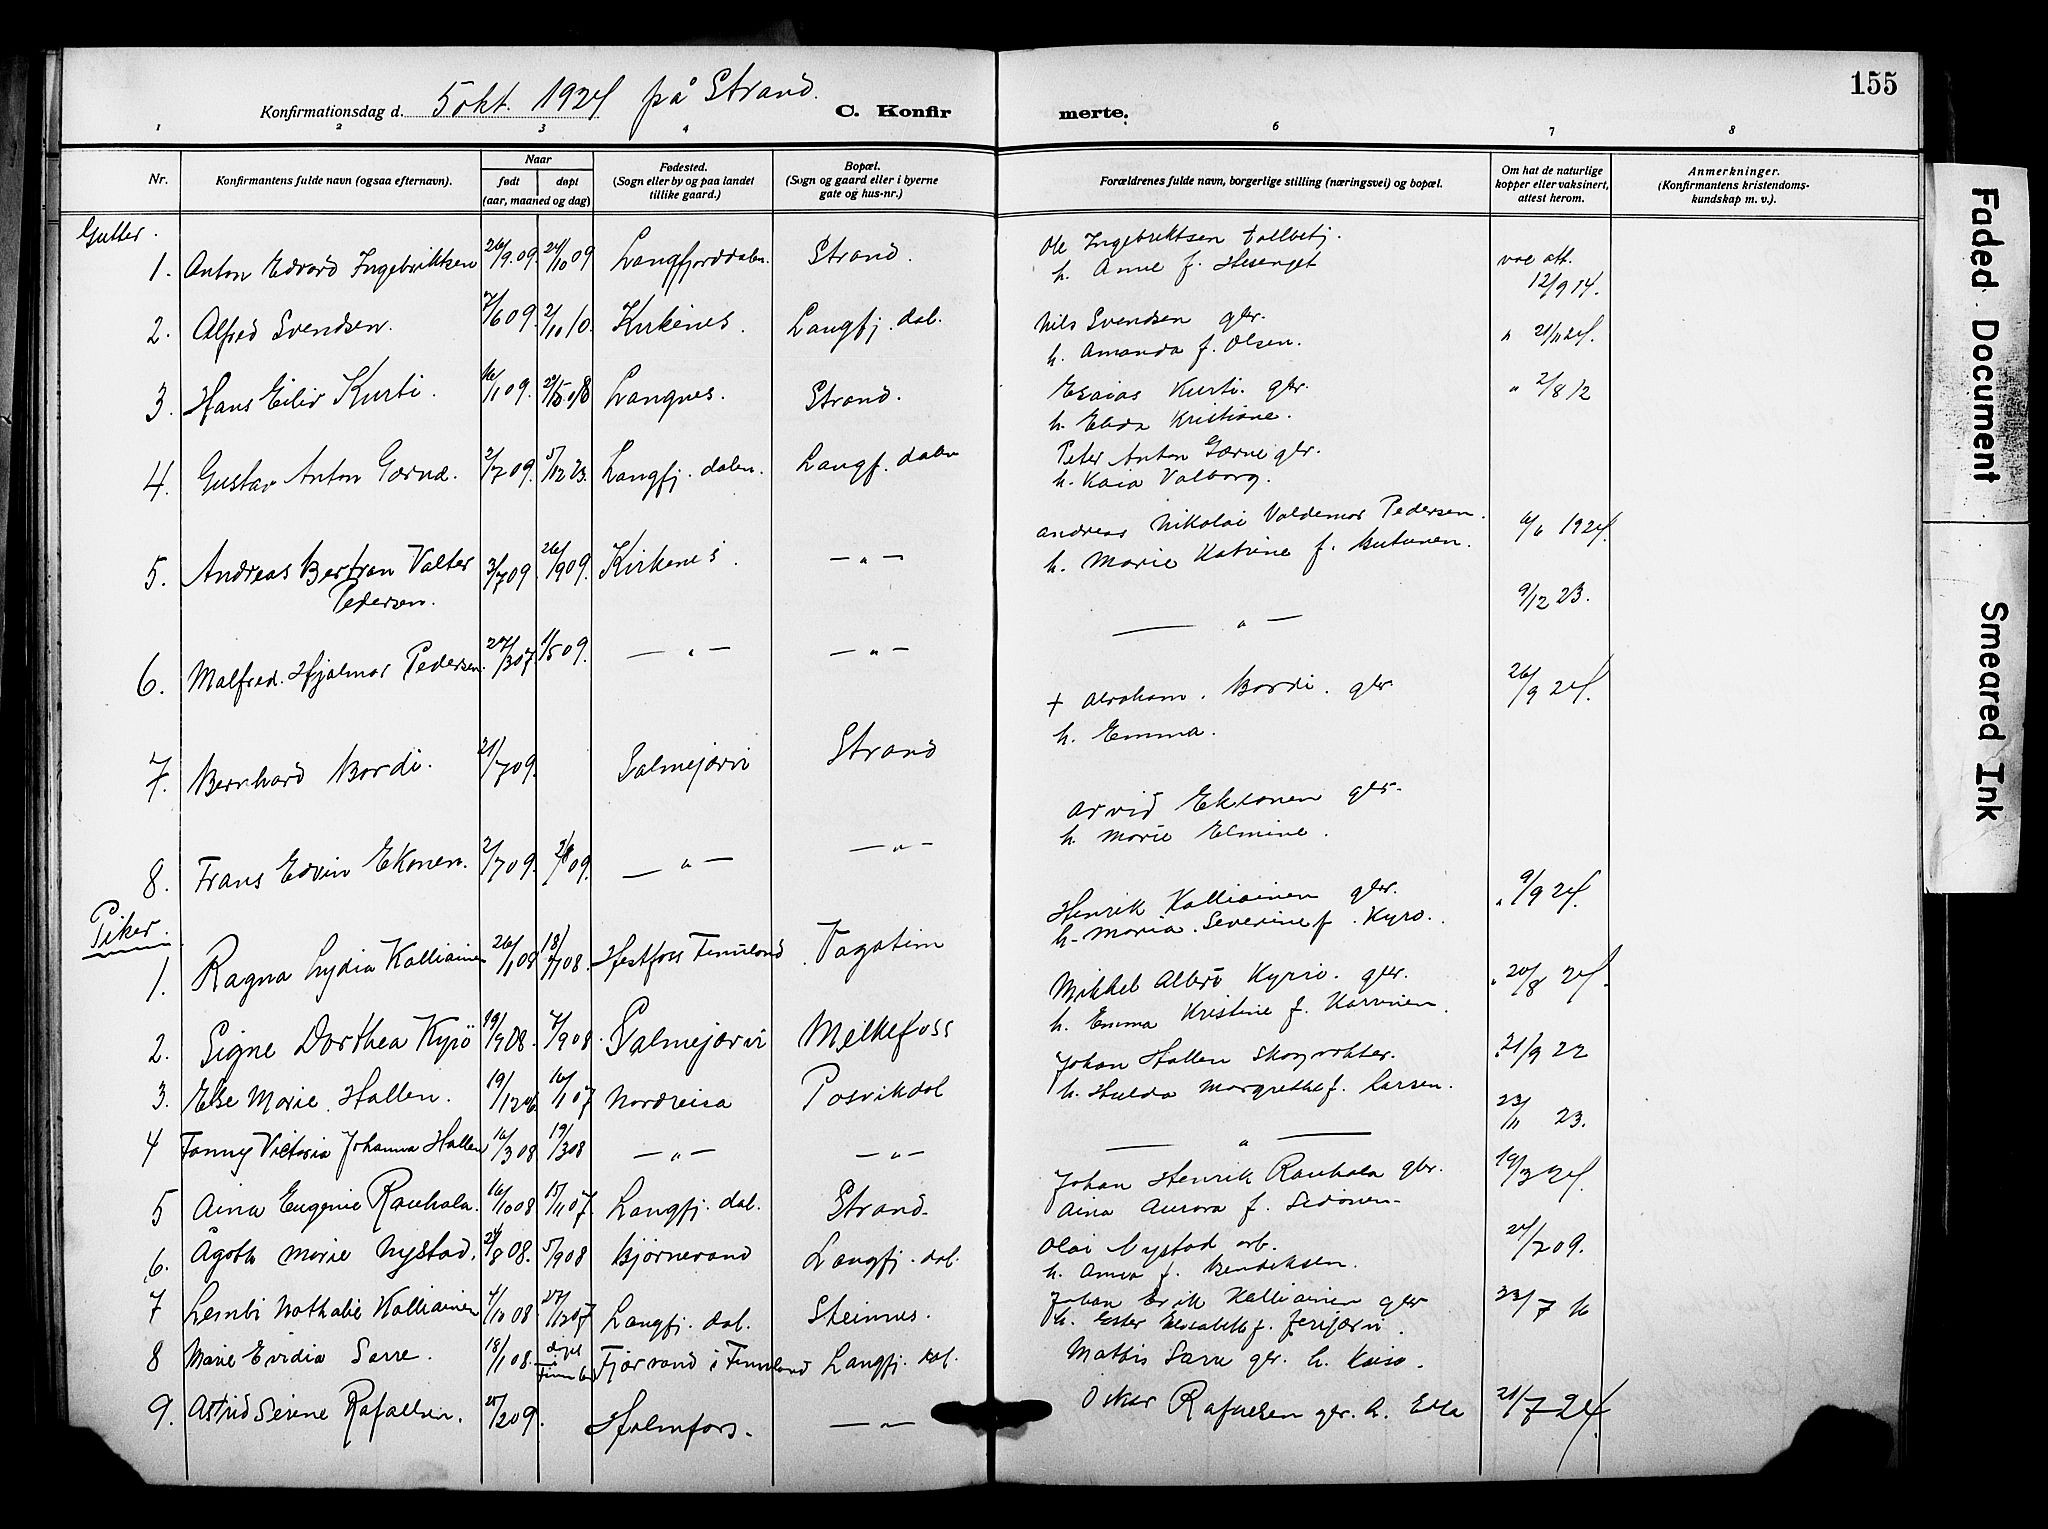 155
Konfirmationsdag d. 5 okt. 1924 på Strand.
C. Konfirmerte.
1 2 3 4 6 7 8
Nr.
Konfirmantens fulde navn (ogsaa efternavn).
Naar
født døpt
(aar, maaned og dag)
Fødested.
(Sogn eller by og paa landet
tillike gaard.)
Bopæl.
(Sogn og gaard eller i byerne
gate og hus-nr.)
Forældrenes fulde navn, borgerlige stilling (næringsvei) og bopæl.
Om hat de naturlige
kopper eller vaksinert,
attest herom.
Anmerkninger.
(Konfirmantens kristendoms-
kundskap m. v.).
Gutter.
1. Anton Edvard Ingebriktsen 26/9 09. 24/10 09 Langfjorddalen. Strand. Ole Ingebriktsen tollbetj.
h. Anne f. vac att.
12/9 14.
2. Alfred Svendsen. 7/6 09. 2/11 10. Kirkenes. Langfj. dal. Nils Svendsen gbr.
h. Amanda f. Olsen. " 21/11 24.
3. Hans Eilif Kurti. Langnes. Strand. Esaias Kurti. gbr.
h. Elida Kristiane. " 2/8 12
4. Gustav Anton Gærne. 2/7 09. 5/12 23. Langfj. dalen. Langf. dalen Peter Anton Gærne gbr.
h. Kaia Valborg.
5. Andreas Bertran Valter
Pedersen. 3/7 09. 26/9 09. Kirkenes. — " — Andreas Nikolai Valdemar Pedersen.
h. Marie Katrine f. 1924.
6. Malfred. Hjalmar Pedersen. 27/3 07. 1/5 09. — " — — " — — " — 9/12 23.
7. Bernhard Bordi. 21/7 09. Salmejærvi Strand + Abraham. Bordi. gbr.
h. Emma. 26/9 24.
8. Frans Edvin Ekonen. 2/7 09. — " — — " — Arvid Ekonen gbr.
h. Marie Elmine.
Piker.
1. Ragna Lydia Kalliainen 26/1 08 18/7 08. Hestfoss Finnland Vagatem Henrik Kalliainen gbr.
h. Maria. Severine f. Kyrö. " 9/9 24.
2. Signe Dorthea Kyrö 19/9 08. 7/9 08. Salmejærvi Melkefoss Mikkel Albert Kyrö. gbr.
h. Emma Kristine f. Karvinen. " 20/8 24.
3. Else Marie. Hallen. 19/12 06. 16/1 07 Nordreisa Pasvikdal Johan Hallen Skogvokter.
h. Hulda Margrethe f. Larsen. " 21/9 22
4 Fanny Victoria Johanna Hallen 16/3 08 19/3 08 — " — — " — — " — 23/11 23.
5 Aina Eugenie Rauhala. 16/10 08 15/11 07. Langfj. dal. Strand. Johan Henrik Rauhala gbr.
Aina Aurora f. 19/3 24.
6. Ågoth Marie Nystad. 8 08. 5/9 08 Bjørnevand Langfj. dal. Olai Nystad arb.
h. Anna f. Bendiksen. 09.
7 Lembi Nathalie Kalliainen 4/10 08 27/12 07 Langfj. dal. Steinnes. Johan Erik Kalliainen gbr
h. Ester Elisabeth f. 23/7 16
8 Marie Evidia Sarre. 18/1 08. døpt
i
Finnld Fjørvand i Finnland Langfj. dal. Mathis Sarre gbr. h. Kaisa.
9. Astrid Serine Rafaelsen. 25/2 09. Holmfors. — " — Oskar Rafaelsen gbr. h. Ella 21/7 24.
Faded Document
Smeared Ink